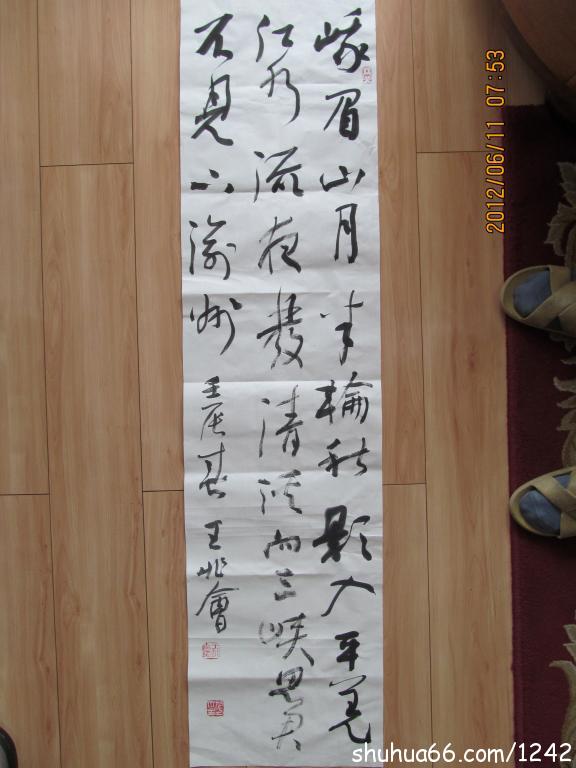 峨眉山月半輪秋影入平羌
江水流夜發清溪向三峽思君
不見下渝州 壬辰 王兆會
2012/06/11 07:53
shuhua66.com/1242